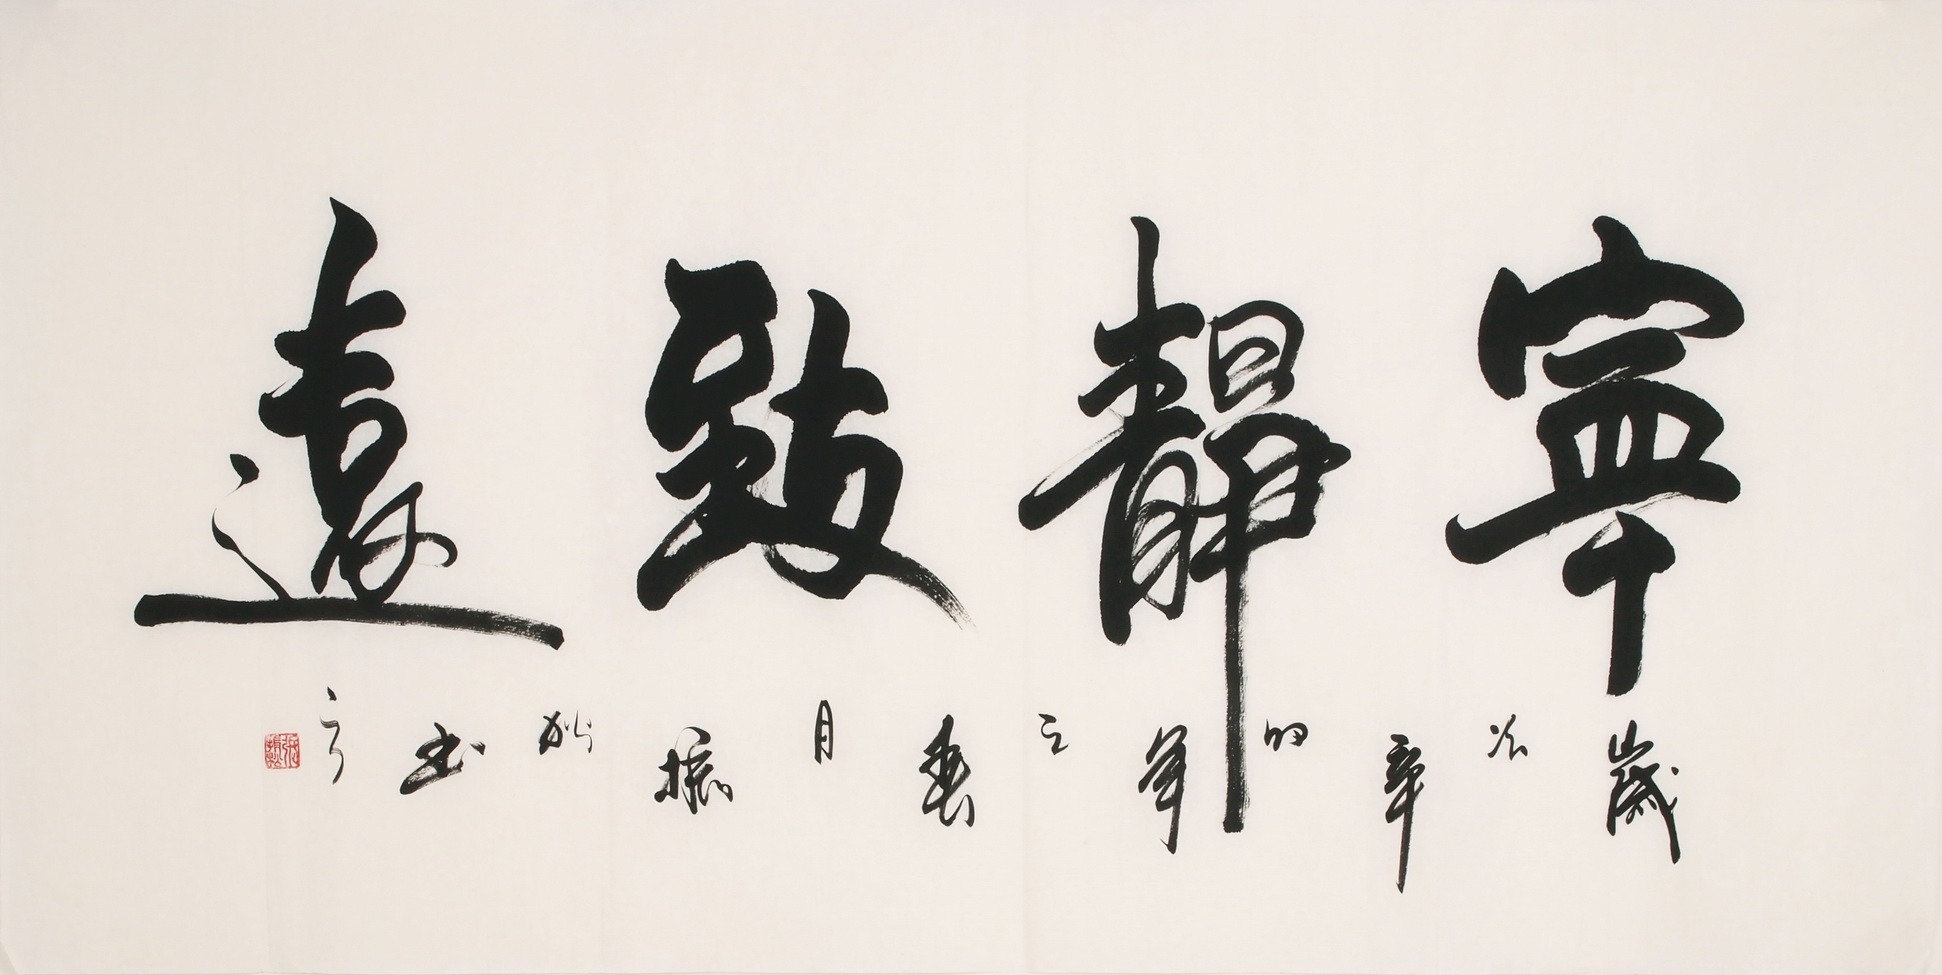 寧靜致遠
歲次辛卯年之春月振
書